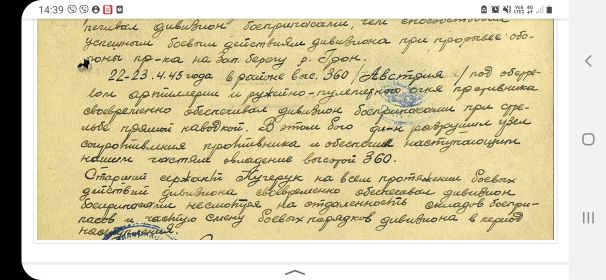 14:39
печивал дивизион боеприпасами, чем способствовал
успешным боевым действиям дивизиона при прорыве обо-
роны пр-ка на зап. берегу р. Грон.
22-23.4.45 года в районе выс. 360 /Австрия/ под обстре-
лом артиллерии и ружейно-пулеметного огня противника
своевременно обеспечивал дивизион боеприпасами при стре-
льбе прямой наводкой. В этом бою ди-н разрушил узел
сопротивления противника и обеспечил наступающим
нашим частям овладение высотой 360.
Старший сержант Кучерук на всем протяжении боевых
действий дивизиона своевременно обеспечивал дивизион
боеприпасами несмотря на отдаленность складов боепри-
пасов и частую смену боевых порядков дивизиона в период
наступления.